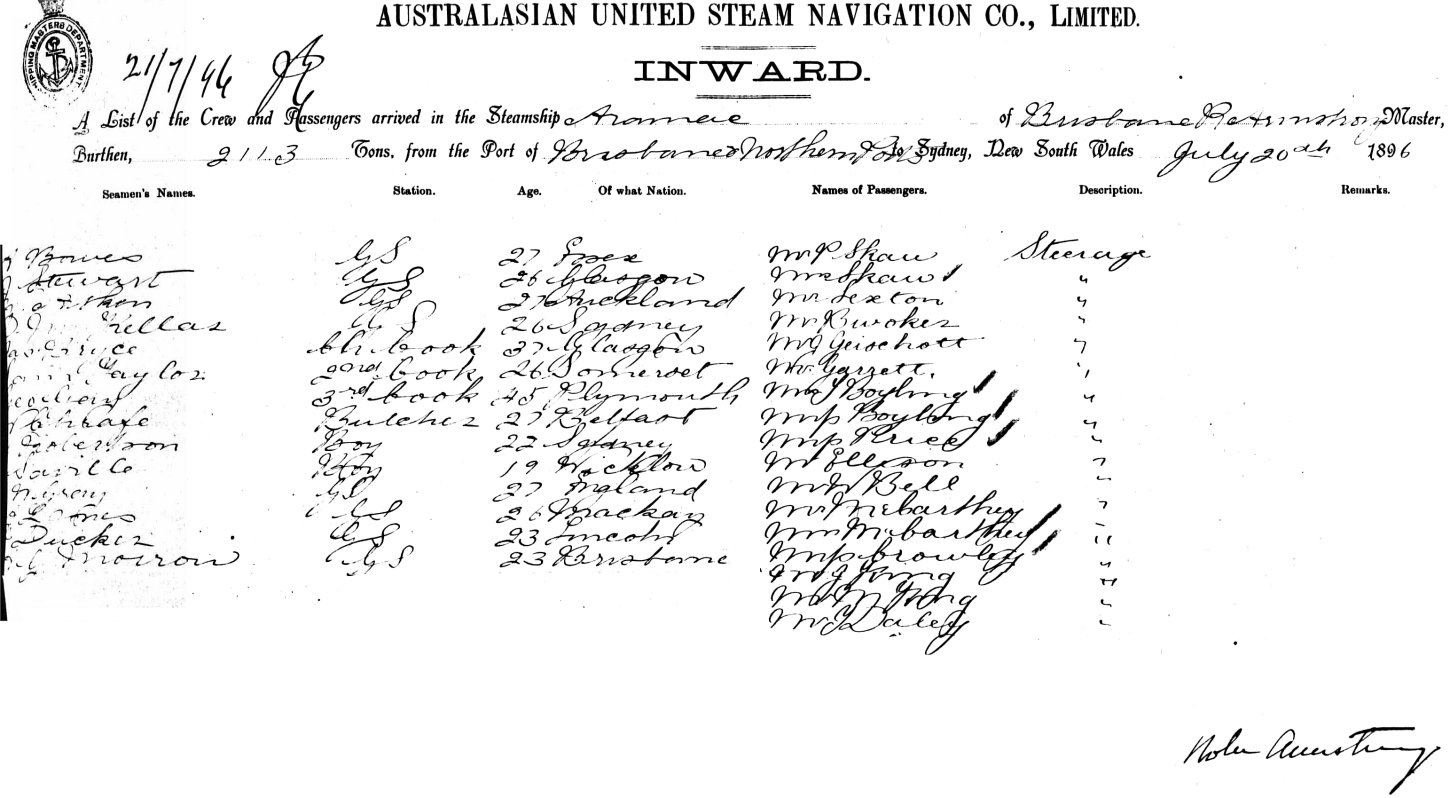 SHIPPING MASTERS DEPARTMENT
AUSTRALASIAN UNITED STEAM NAVIGATION CO., LIMITED.
21/7/96
INWARD.
A List of the Crew and Passengers arrived in the Steamship Aramac of Brisbane R Armstrong Master,
Burthen, 2113 Tons, from the Port of Brisbane & Northern Ports to Sydney, New South Wales July 20th 1896
Seamen's Names. Station. Age. Of what Nation. Names of Passengers. Description. Remarks.
Bowes GS 27 Essex Mr P Shaw Steerage
Stewart GS 26 Glasgow Mrs Shaw "
GS 27 Auckland Mr Sexton "
Kellas GS 26 Sydney Mr "
Bryce Ch. Cook 37 Glasgow Mr "
Taylor 2nd Cook 26 Somerset Mr Garrett. "
3rd Cook 45 Plymouth Boyling "
Butcher 27 Belfast Boyling "
Robertson Boy 22 Sydney Price "
Saville Boy 19 Wicklow Mr Ellison "
GS 27 England Mr W Bell "
GS 26 Mackay Mr McCarthey "
Ducker GS 23 Lincoln Mrs McCarthey "
GS 23 Brisbane Crowley "
Mr J "
Mr M "
Mr J Daley "
Armstrong